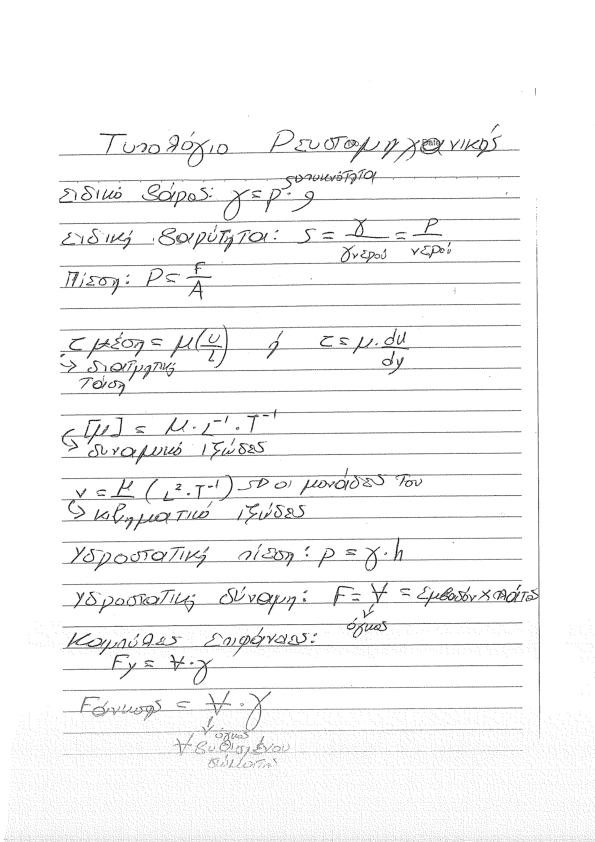 Τυπολόγιο Ρευστομηχανικής
→ πυκνότητα
Ειδικό βάρος: γ = ρ · g
Ειδική βαρύτητα: S = γ / γνερού = ρ / ρνερού
Πίεση: P = F / A
τ μέση = μ (U/L) ή τ = μ · du/dy
↳ διατμητική
τάση
[μ] = M · L⁻¹ · T⁻¹
↳ δυναμικό ιξώδες
ν = μ/ (L² · T⁻¹) → οι μονάδες του
↳ κινηματικό ιξώδες
Υδροστατική πίεση: p = γ · h
Υδροστατική δύναμη: F = V = Εμβαδόν x πλάτος
όγκος
Καμπύλες Επιφάνειες:
Fy = V · γ
Fάνωσης = V · γ
όγκος
V βυθισμένου
σώματος